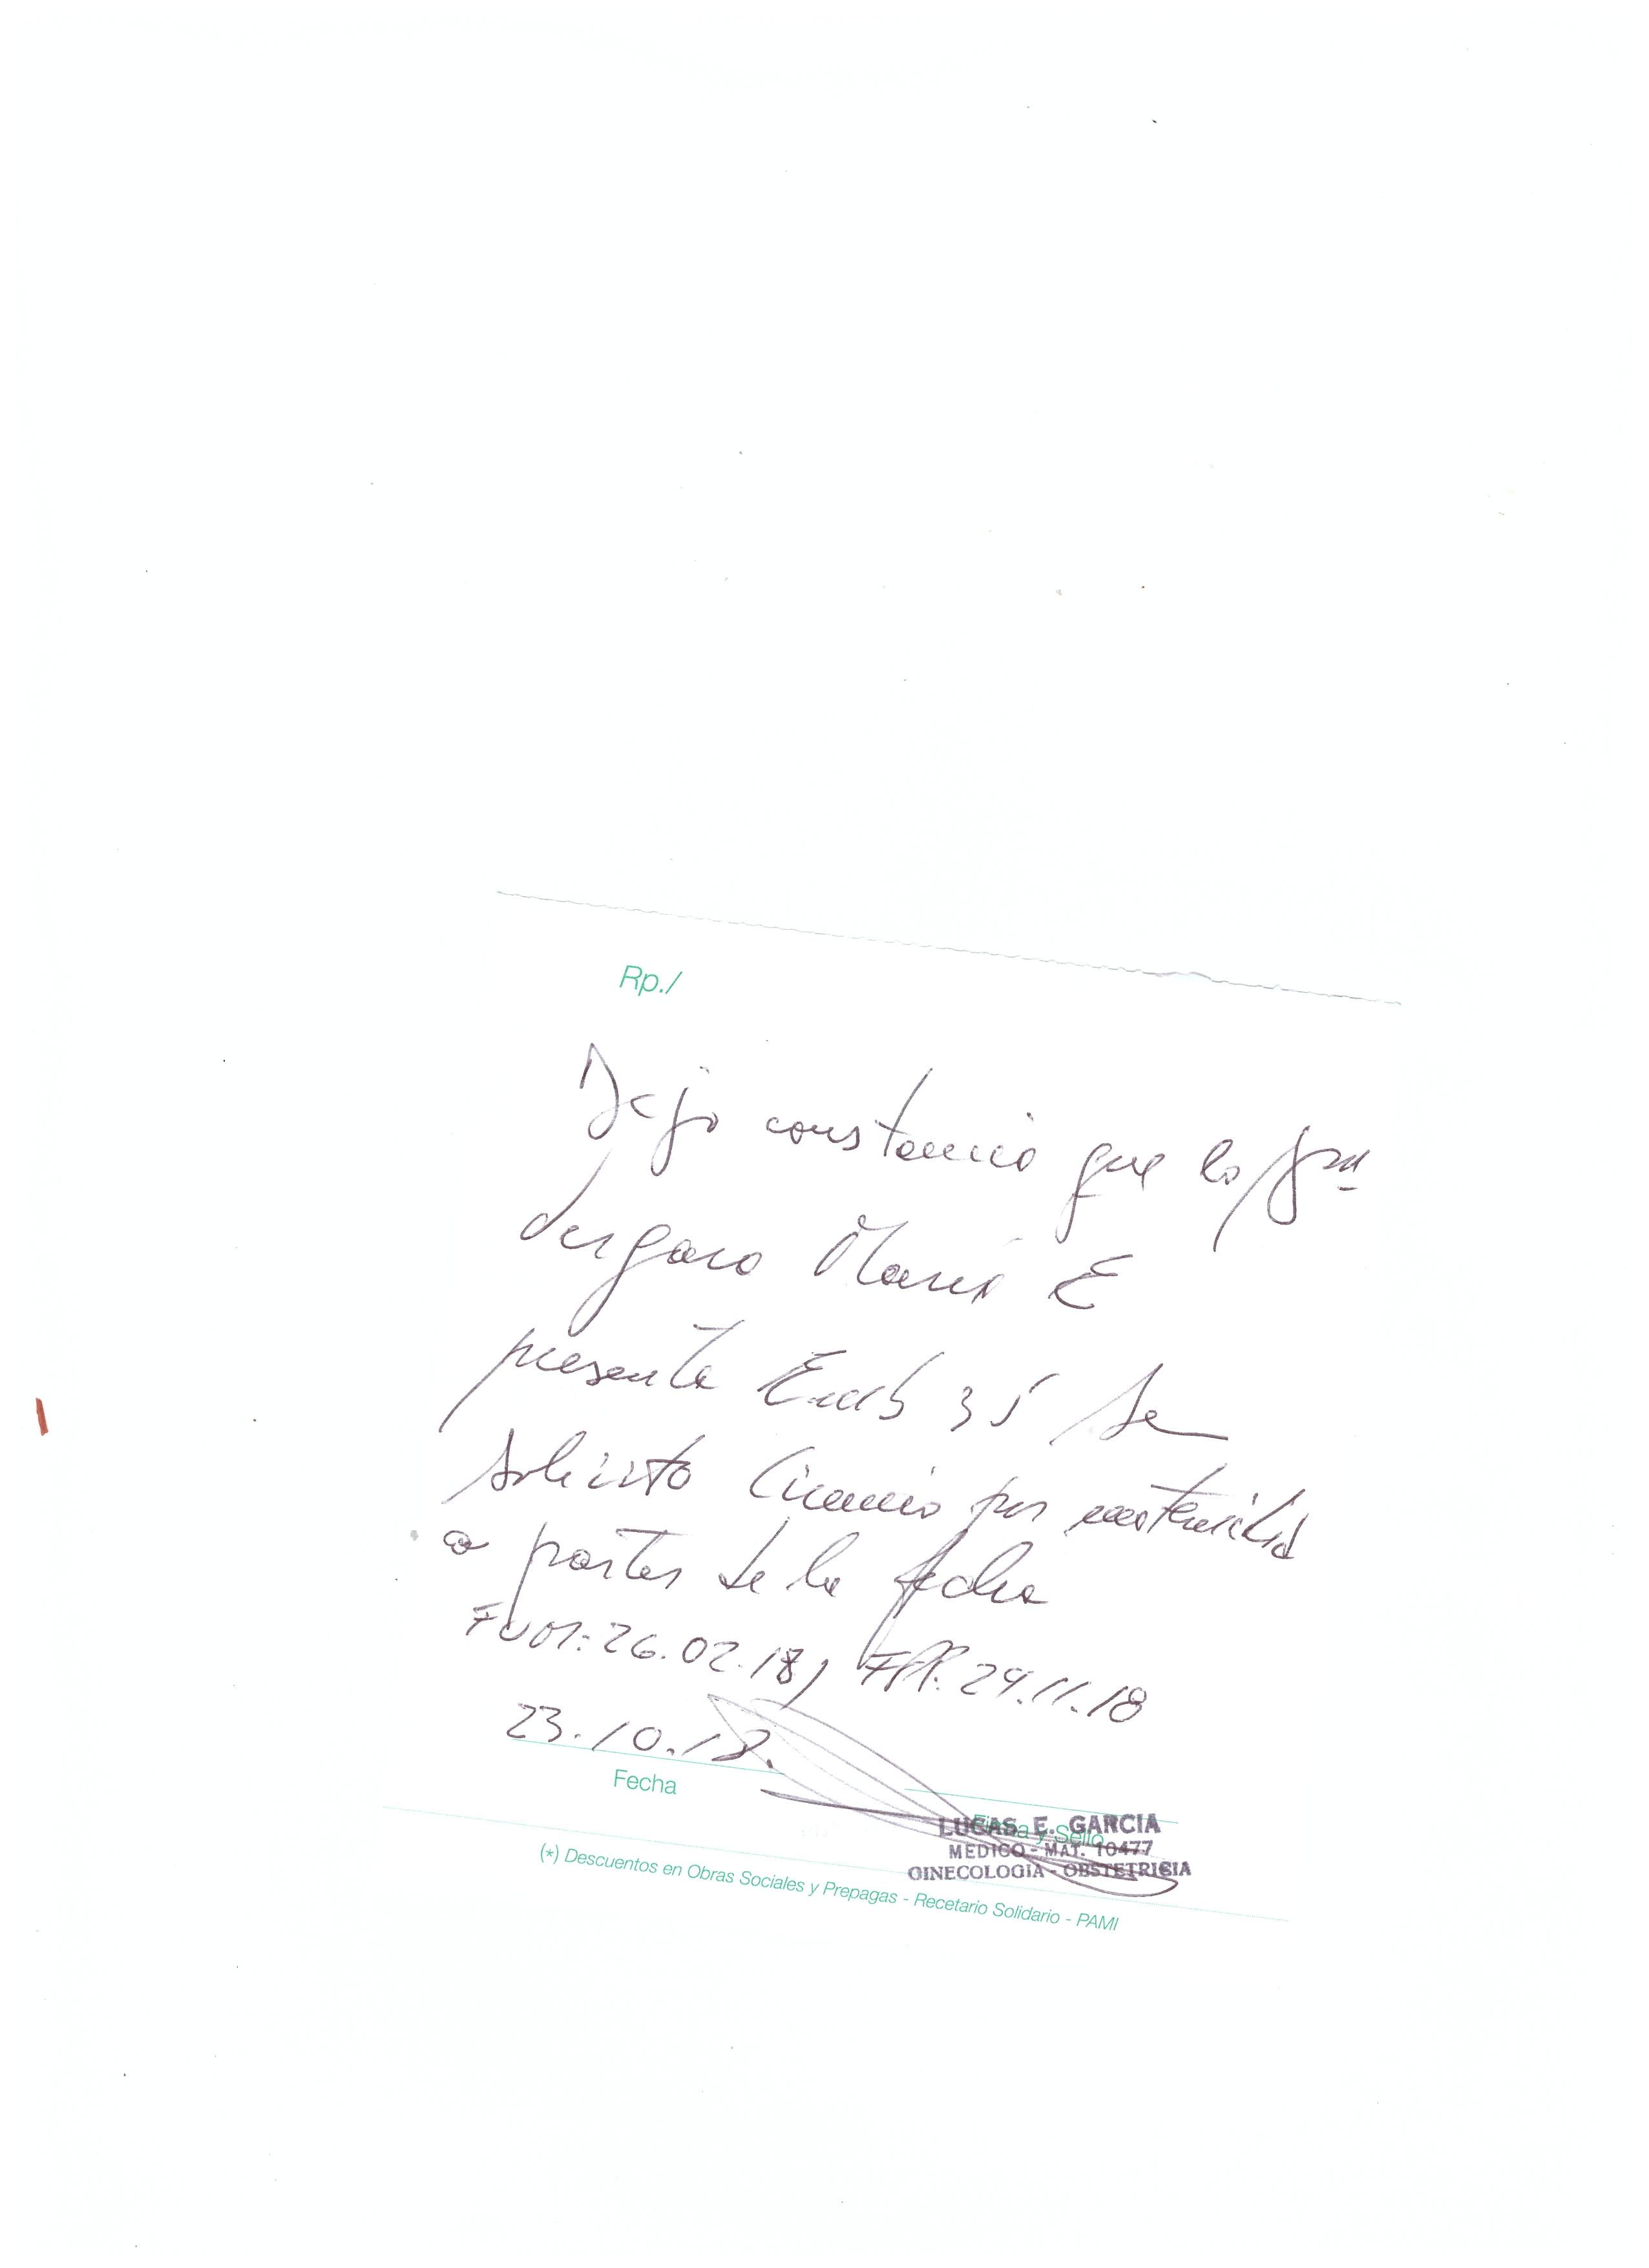 Rp./
Dejo constancia que la Sra
Vergara Maria E
presenta Emb 35 se
solicito licencia por maternidad
a partir de la fecha
FUM: 26.02.18, FPP: 29.11.18
23.10.18.
Fecha
Firma y Sello
LUCAS E. GARCIA
MEDICO - MAT. 10477
GINECOLOGIA - OBSTETRICIA
(*) Descuentos en Obras Sociales y Prepagas - Recetario Solidario - PAMI